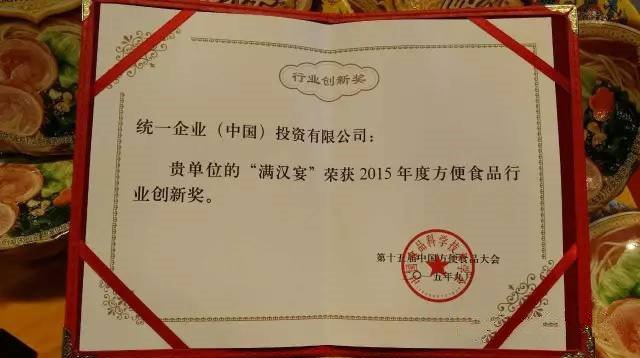 行业创新奖
统一企业（中国）投资有限公司：
贵单位的“满汉宴”荣获2015年度方便食品行
业创新奖。
第十五届中国方便食品大会
二〇一五年九月
中国食品科学技术学会